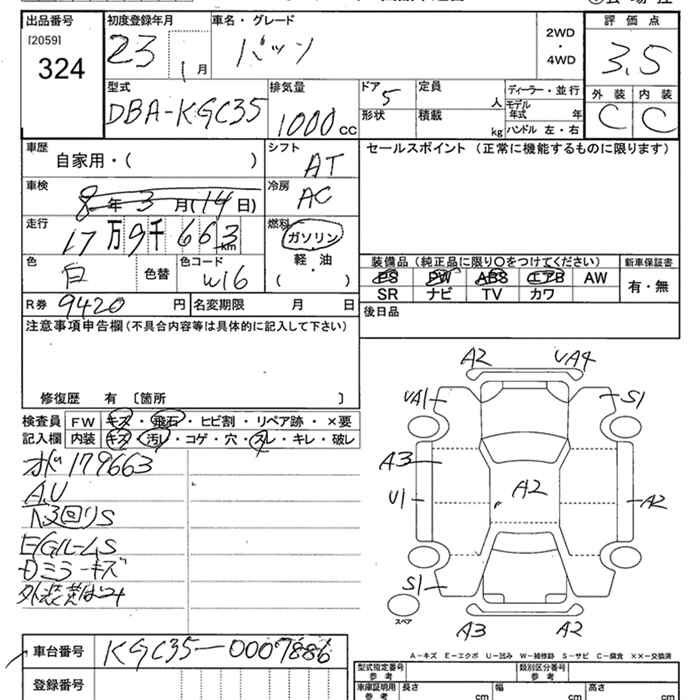 出品番号
[2059]
324
初度登録年月
23
1月
車名・グレード
パッソ
2WD
・
4WD
評価点
3.5
型式
DBA-KGC35
排気量
1000cc
ドア
5
形状
定員
人
積載
kg
ディーラー・並行
モデル
年式 年
ハンドル 左・右
外装
C
内装
C
車歴
自家用・( )
シフト
AT
セールスポイント (正常に機能するものに限ります)
車検
8年3月(14日)
冷房
AC
走行
17万9千663km
燃料
ガソリン
軽・油
( )
色
白
色替
色コード
W16
装備品 (純正品に限り〇をつけてください)
PS PW ABS エアB AW
SR ナビ TV カワ
新車保証書
有・無
R券 9420円
名変期限 月 日
後日品
注意事項申告欄 (不具合内容等は具体的に記入して下さい)
修復歴 有 〔箇所 〕
検査員
記入欄
FW キズ・飛石・ヒビ割・リペア跡・×要
内装 キズ・汚レ・コゲ・穴・スレ・キレ・破レ
179663
A.U
下回りS
E/GルームS
ミラーキズ
A2
UA4
UA1
S1
A3
U1
A2
A2
S1
A3
A2
スペア
A-キズ E-エクボ U-凹み W-補修跡 S-サビ C-腐食 ××-交換済
車台番号
KGC35-0007886
登録番号
型式指定番号
参考
類別区分番号
参考
車庫証明用
参考
長さ cm
幅 cm
高さ cm